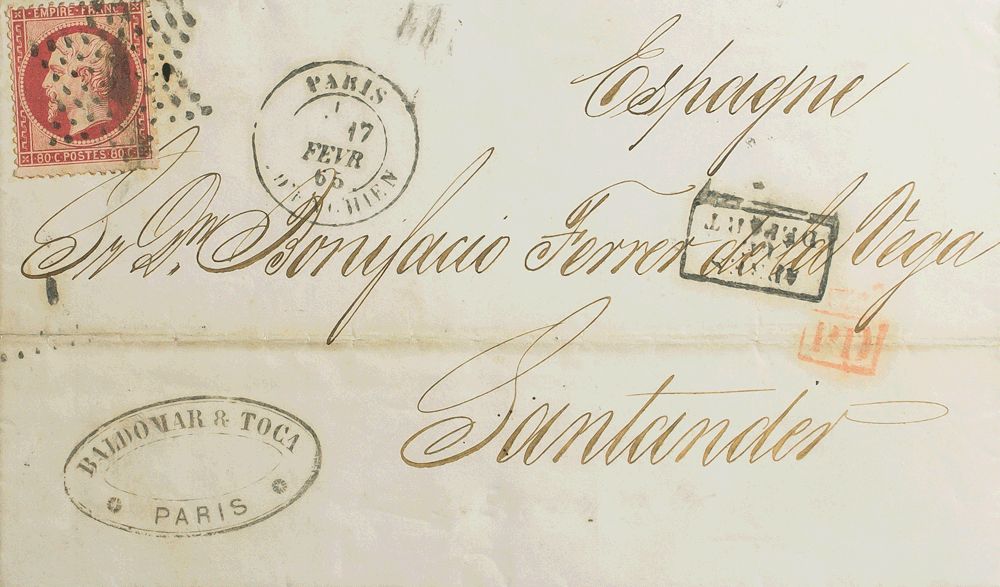 EMPIRE FRANC
80 C POSTES 80 C
PARIS
17
FEVR
65
Espagne
Sr Dn Dn Bonifacio Ferrer de la Vega
DEPART
PD
Santander
BALDOMAR & TOCA
PARIS